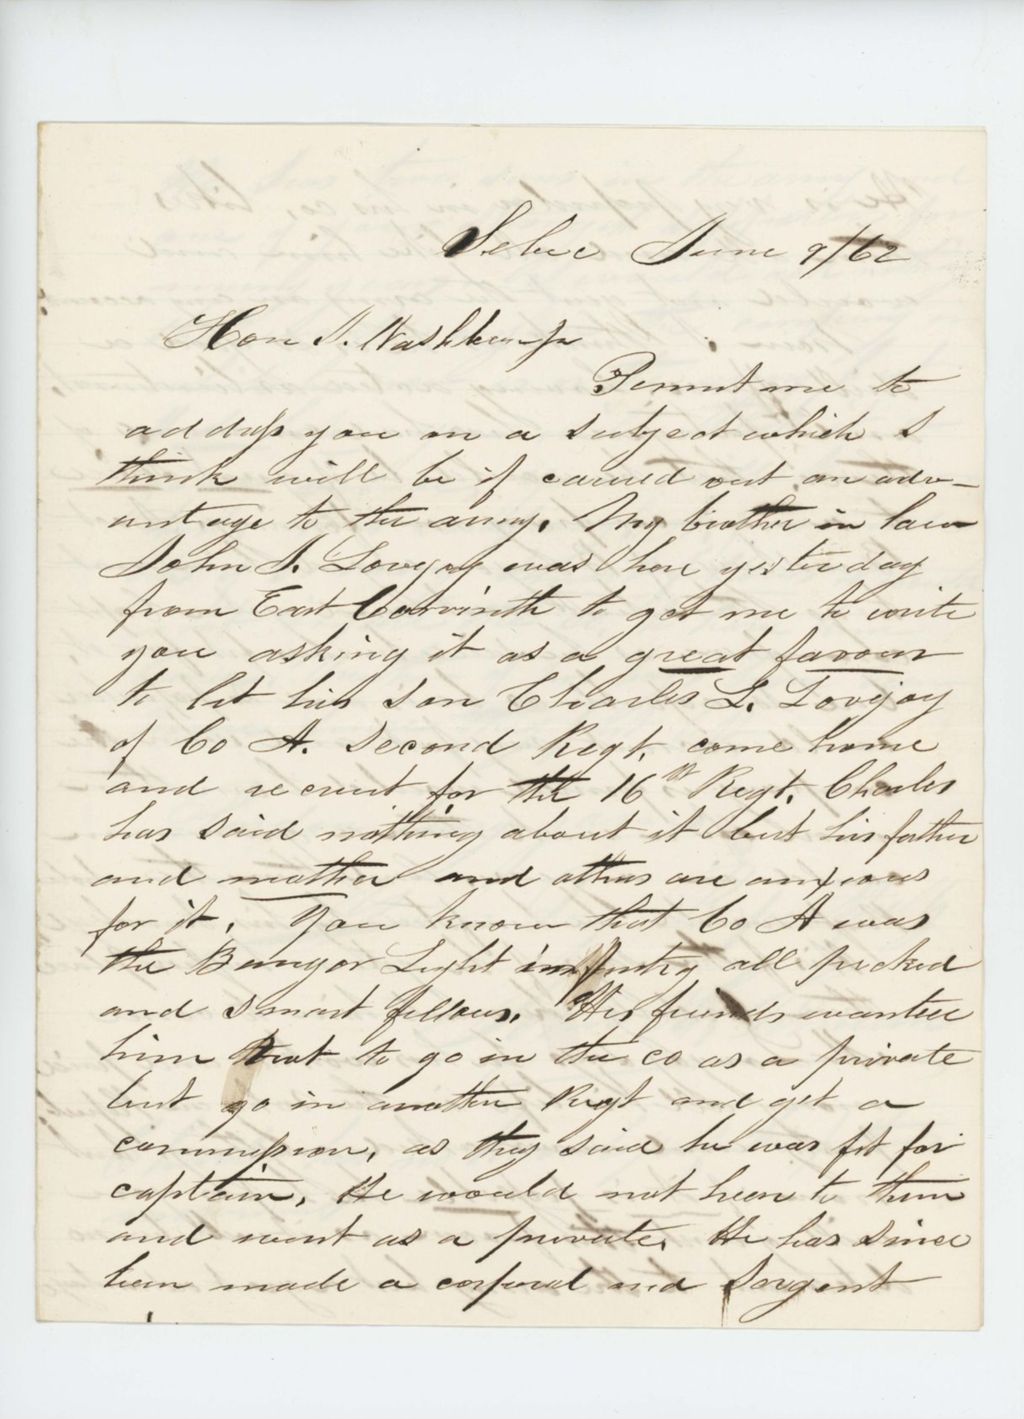 Sebec June 9/62
Hon I. Washburn Jr
Permit me to
address you on a subject which I
think will be if carried out an adv-
antage to the army. My brother in law
John S. Lovejoy was here yesterday
from East Corrinth to get me to write
you asking it as a great favour
to let his son Charles L. Lovejoy
of Co A. Second Regt. come home
and recruit for the 16th Regt. Charles
has said nothing about it but his father
and mother and others are anxious
for it. You know that Co A was
the Bangor Light infantry all picked
and smart fellows. His friends wanted
him not to go in the co as a private
but go in another Regt and get a
commission, as they said he was fit for
captain. He would not hear to them
and went as a private. He has since
been made a corporal and Sergent